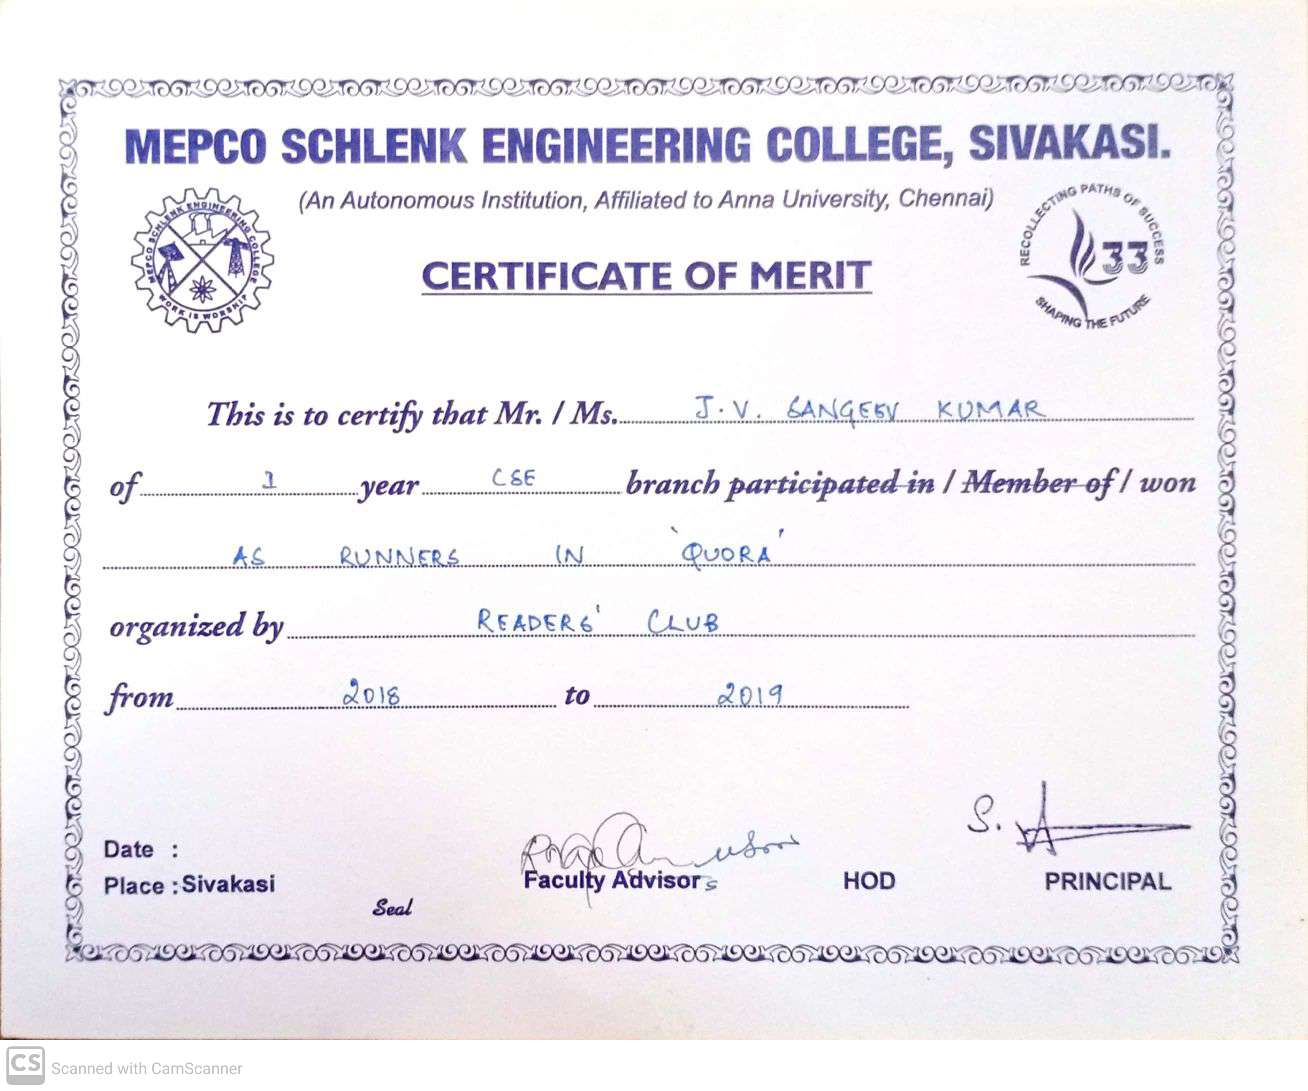 MEPCO SCHLENK ENGINEERING COLLEGE, SIVAKASI.
(An Autonomous Institution, Affiliated to Anna University, Chennai)
MEPCO SCHLENK ENGINEERING COLLEGE
WORK IS WORSHIP
RECOLLECTING PATHS OF SUCCESS
33
SHAPING THE FUTURE
CERTIFICATE OF MERIT
This is to certify that Mr. / Ms. J.V. SANGEEV KUMAR
of I year CSE branch participated in / Member of / won
AS RUNNERS IN 'QUORA'
organized by READERS' CLUB
from 2018 to 2019
Date :
Place : Sivakasi
Seal
Faculty Advisors
HOD
PRINCIPAL
CS Scanned with CamScanner